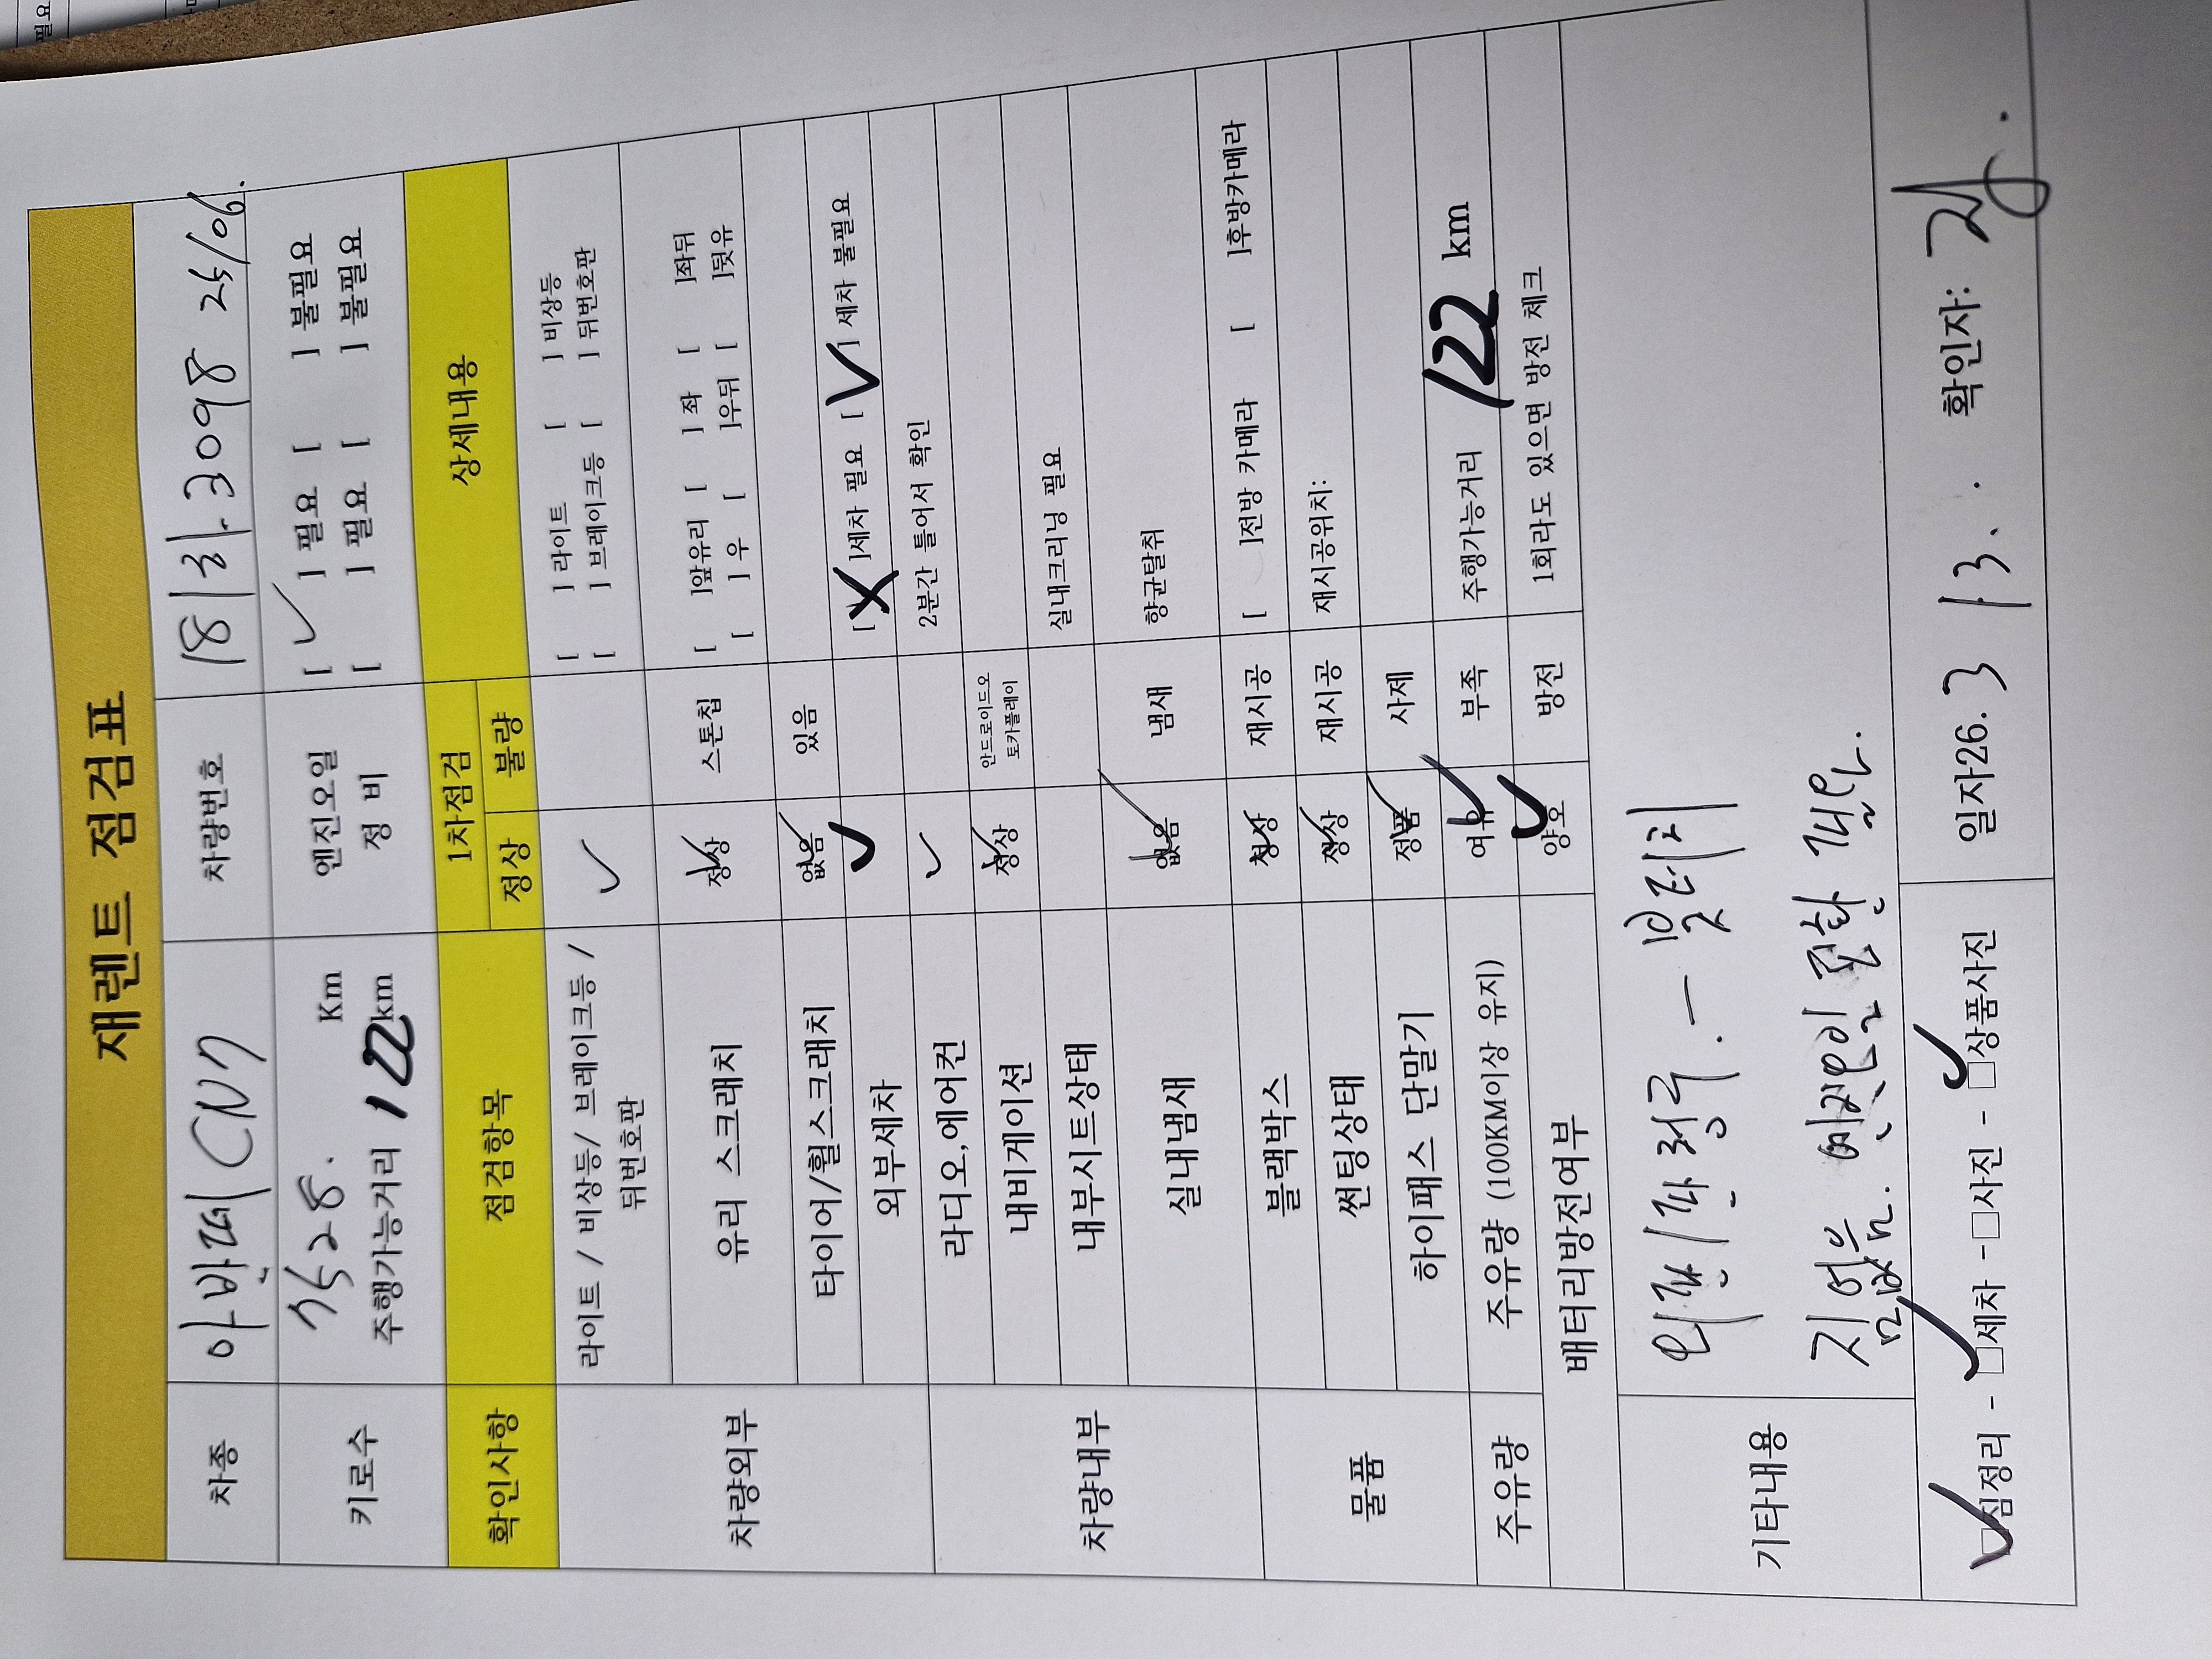 재렌트 점검표
차종 아반떼 CN7 차량번호 18하.3098 25/06.
키로수 7528. Km 엔진오일 [ ✓ ] 필요 [ ] 불필요
주행가능거리 122 km 정 비 [ ] 필요 [ ] 불필요
확인사항 점검항목 1차점검 상세내용
정상 불량
차량외부 라이트 / 비상등/ 브레이크등 / 뒤번호판 ✓ [ ] 라이트 [ ] 비상등
[ ] 브레이크등 [ ] 뒤번호판
유리 스크래치 정상 ✓ 스톤칩 [ ]앞유리 [ ] 좌 [ ]좌뒤
[ ] 우 [ ]우뒤 [ ]뒷유
타이어/휠스크래치 없음 ✓ 있음
외부세차 ✓ [ X ]세차 필요 [ ✓ ] 세차 불필요
차량내부 라디오,에어컨 ✓ 2분간 틀어서 확인
내비게이션 정상 ✓ 안드로이드오토카플레이
내부시트상태 실내크리닝 필요
실내냄새 없음 ✓ 냄새 향균탈취
물품 블랙박스 정상 ✓ 재시공 [ ]전방 카메라 [ ]후방카메라
썬팅상태 정상 ✓ 재시공 재시공위치:
하이패스 단말기 정품 ✓ 사제
주유량 주유량 (100KM이상 유지) 여유 ✓ 부족 주행가능거리 122 km
배터리방전여부 양호 ✓ 방전 1회라도 있으면 방전 체크
기타내용 외관/
짐 없음.
✓ 짐정리 - ✓ 세차 - □사진 - ✓ 상품사진 일자26. 3 13. . 확인자: